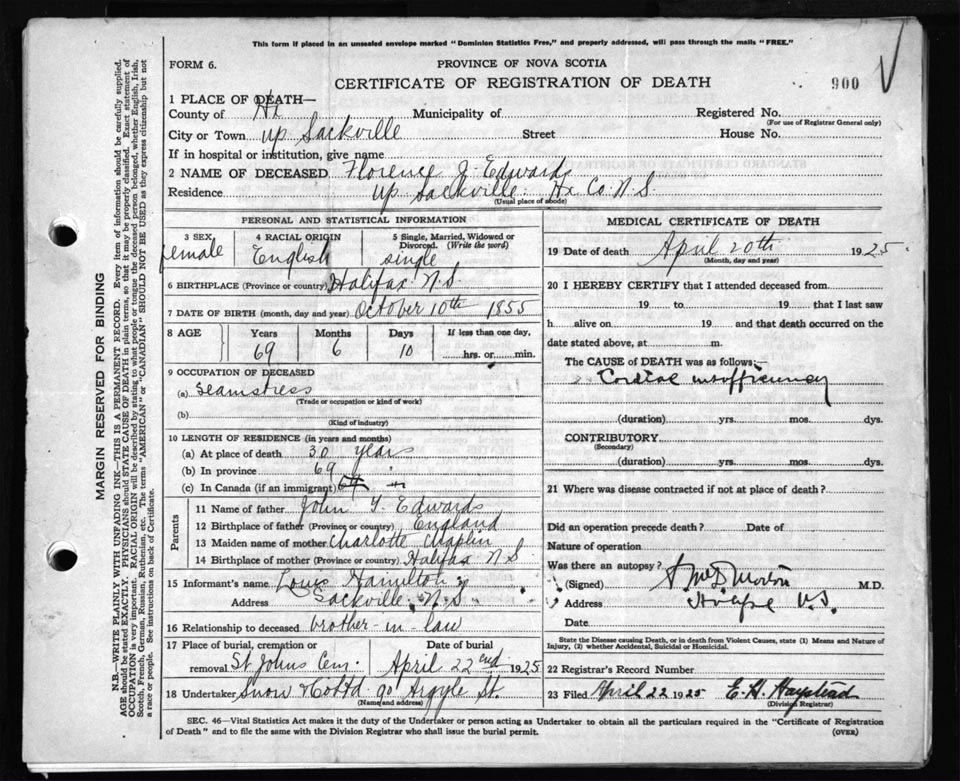 This form if placed in an unsealed envelope marked "Dominion Statistics Free," and properly addressed, will pass through the mails "FREE."
FORM 6.
PROVINCE OF NOVA SCOTIA
CERTIFICATE OF REGISTRATION OF DEATH
900
1 PLACE OF DEATH—
County of Hx Municipality of Registered No.
(For use of Registrar General only)
City or Town up Sackville Street House No.
If in hospital or institution, give name
2 NAME OF DECEASED Florence J. Edwards
Residence up Sackville. Hx Co. N.S.
(Usual place of abode)
PERSONAL AND STATISTICAL INFORMATION
3 SEX 4 RACIAL ORIGIN 5 Single, Married, Widowed or Divorced. (Write the word)
female English single
6 BIRTHPLACE (Province or country) Halifax N.S.
7 DATE OF BIRTH (month, day and year) October 10th 1855
8 AGE Years Months Days If less than one day,
69 6 10 hrs. or min.
9 OCCUPATION OF DECEASED
(a) Seamstress
(Trade or occupation or kind of work)
(b)
(Kind of industry)
10 LENGTH OF RESIDENCE (in years and months)
(a) At place of death 30 years
(b) In province 69 "
(c) In Canada (if an immigrant)
Parents
11 Name of father John Y. Edwards
12 Birthplace of father (Province or country) England
13 Maiden name of mother Charlotte Chaplin
14 Birthplace of mother (Province or Country) Halifax N S
15 Informant's name Louis Hamilton
Address Sackville. N.S.
16 Relationship to deceased brother-in law
17 Place of burial, cremation or Date of burial
removal St Johns Cem. April 22nd 1925
18 Undertaker Snow & Co Ltd 90 Argyle St.
(Name and address)
MEDICAL CERTIFICATE OF DEATH
19 Date of death April 20th 1925.
(Month, day and year)
20 I HEREBY CERTIFY that I attended deceased from
19 to 19 that I last saw
h alive on 19 and that death occurred on the
date stated above, at m.
The CAUSE of DEATH was as follows:—
Cardiac insufficiency
(duration) yrs. mos. dys.
CONTRIBUTORY
(Secondary)
(duration) yrs. mos. dys.
21 Where was disease contracted if not at place of death?
Did an operation precede death? Date of
Nature of operation
Was there an autopsy?
(Signed) Morton M.D.
Address Halifax N.S.
Date
State the Disease causing Death, or in death from Violent Causes, state (1) Means and Nature of
Injury, (2) whether Accidental, Suicidal or Homicidal.
22 Registrar's Record Number
23 Filed April 22 1925 E. H. Haystead
(Division Registrar)
SEC. 46—Vital Statistics Act makes it the duty of the Undertaker or person acting as Undertaker to obtain all the particulars required in the "Certificate of Registration
of Death" and to file the same with the Division Registrar who shall issue the burial permit. (OVER)
MARGIN RESERVED FOR BINDING
N.B.—WRITE PLAINLY WITH UNFADING INK—THIS IS A PERMANENT RECORD. Every item of information should be carefully supplied.
AGE should be stated EXACTLY. PHYSICIANS should STATE CAUSE OF DEATH in plain terms, so that it may be properly classified. Exact statement of
OCCUPATION is very important. RACIAL ORIGIN will be described by stating to what people or tongue the deceased person belonged, whether English, Irish,
Scotch, French, German, Russian, Ruthenian, etc. The terms "AMERICAN" or "CANADIAN" SHOULD NOT BE USED as they express citizenship but not
a race or people. See instructions on back of Certificate.